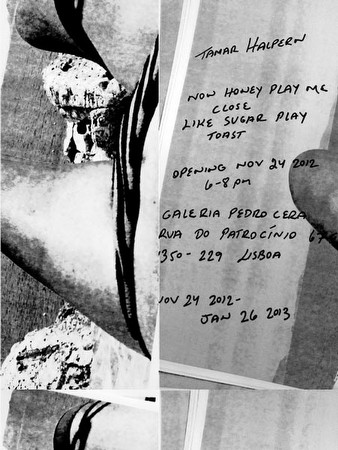 TAMAR HALPERN
NOW HONEY PLAY ME
CLOSE
LIKE SUGAR PLAY
TOAST
OPENING NOV 24 2012
6-8 PM
GALERIA PEDRO CERA
RUA DO PATROCÍNIO 67
1350-229 LISBOA
NOV 24 2012-
JAN 26 2013